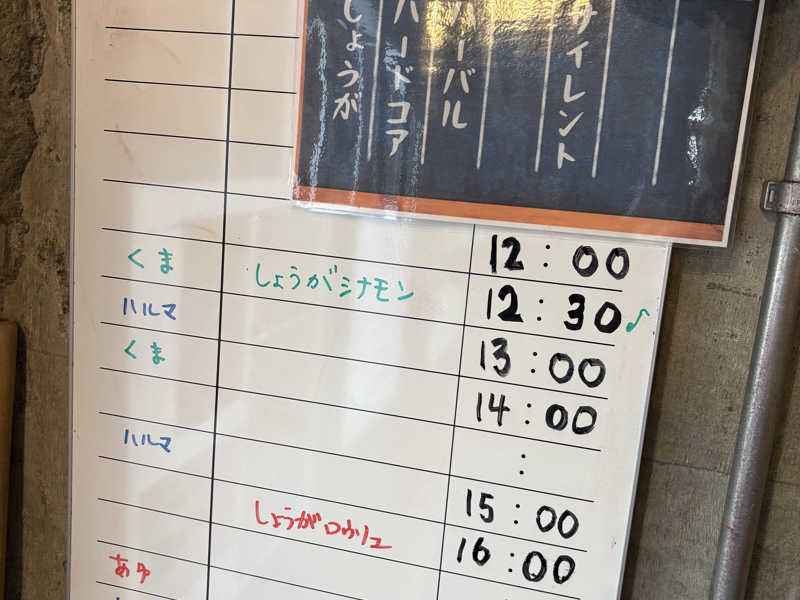 しょうが
ハードコア
ソーバル
サイレント
12:00
くま しょうがシナモン 12:30♪
ハルマ 13:00
くま 14:00
:
ハルマ 15:00
しょうがロウリュ 16:00
あゆ